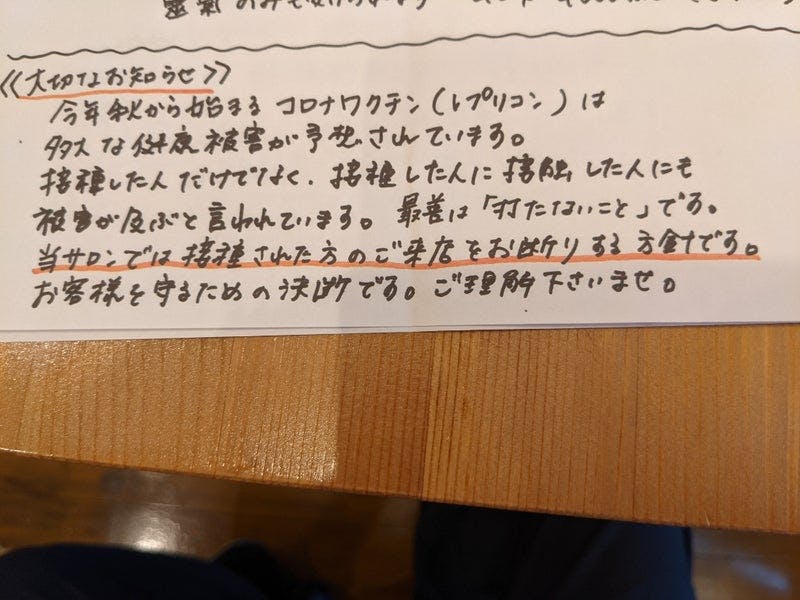 《大切なお知らせ》
今年秋から始まるコロナワクチン(レプリコン)は
多大な健康被害が予想されています。
接種した人だけでなく、接種した人に接触した人にも
被害が及ぶと言われています。最善は「打たないこと」です。
当サロンでは接種された方のご来店をお断りする方針です。
お客様を守るための決断です。ご理解下さいませ。